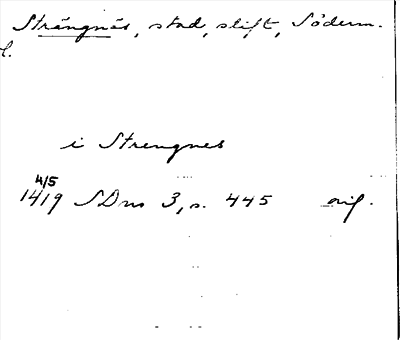 Strängnäs, stad, stift, Söderm.
l.
i Strengnes
4/5
1419 SDns 3, s. 445 orig.